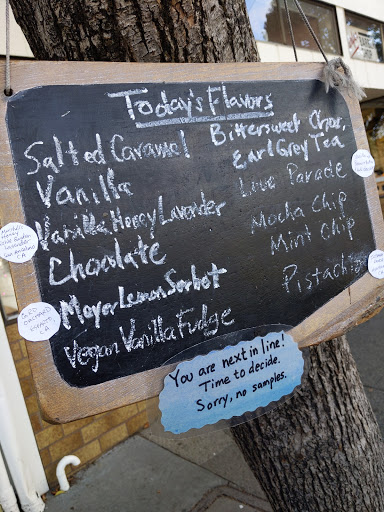 Today's Flavors
Salted Caramel
Vanilla
Vanilla Honey Lavender
Chocolate
Meyer Lemon Sorbet
Vegan Vanilla Fudge
Bittersweet Choc,
Earl Grey Tea
Love Parade
Mocha Chip
Mint Chip
Pistachio
You are next in line!
Time to decide.
Sorry, no samples.